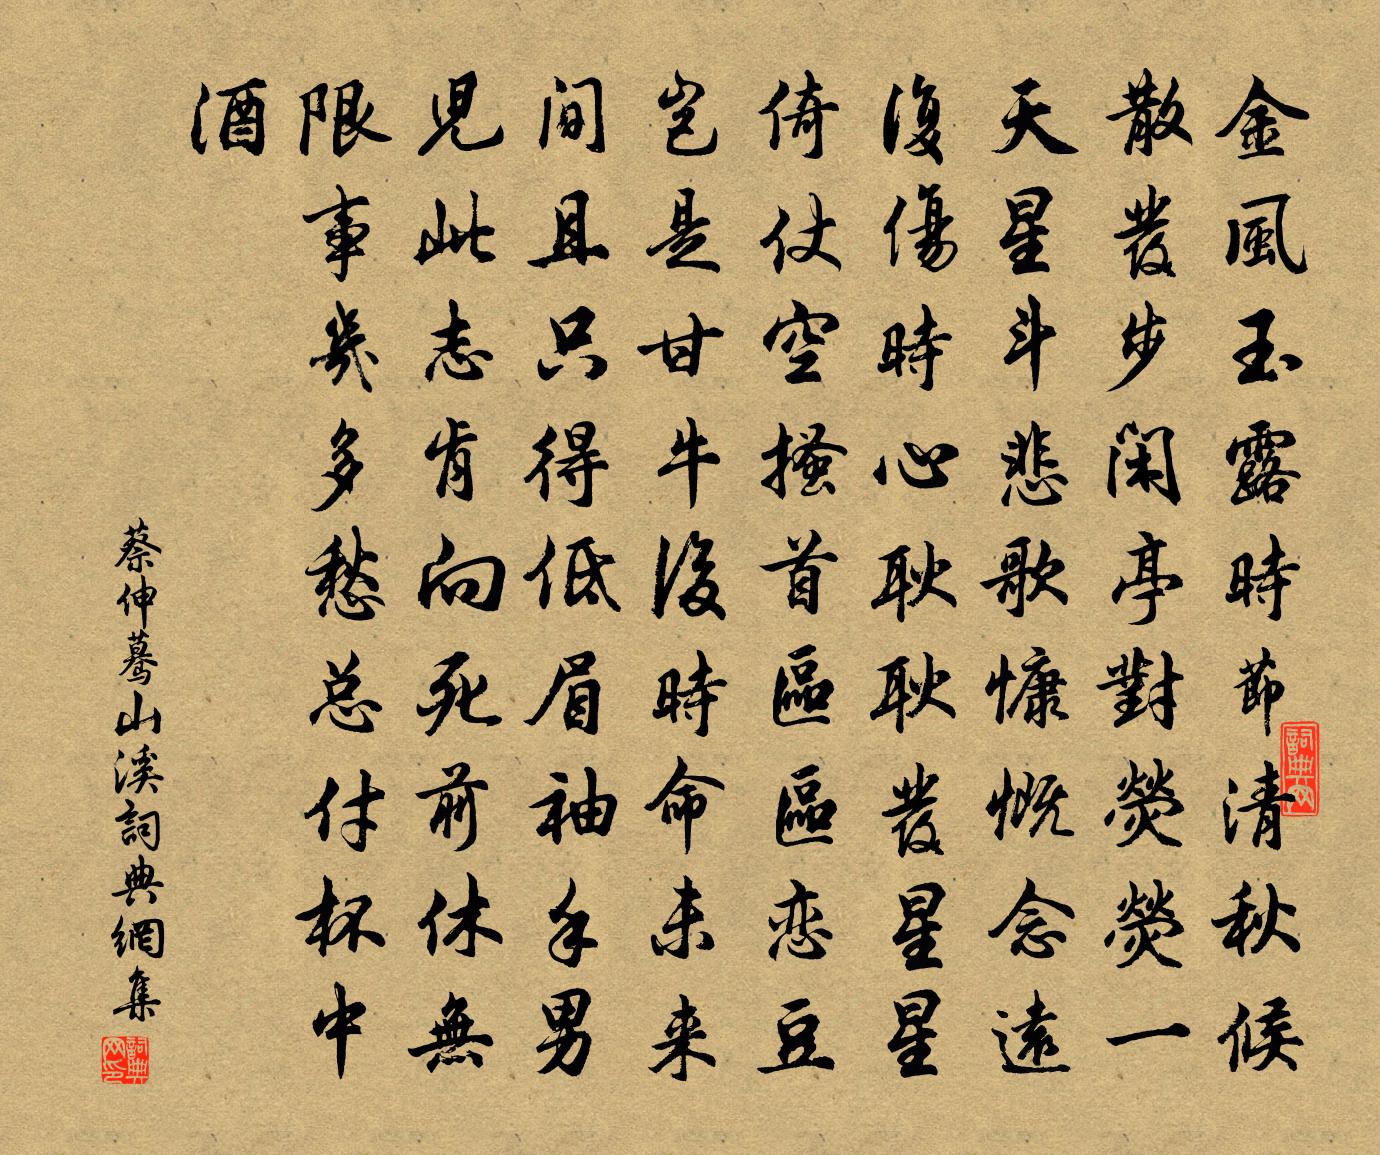 金風玉露時節清秋候
散發步閑亭對熒熒一
天星斗悲歌慷慨念遠
復傷時心耿耿發星星
倚仗空搔首區區恋豆
豈是甘牛後時命未来
間且只得低眉袖手男
児此志肯向死前休無
限事幾多愁总付杯中
酒
蔡伸蓦山溪詞典網集
詞典网
詞典网印